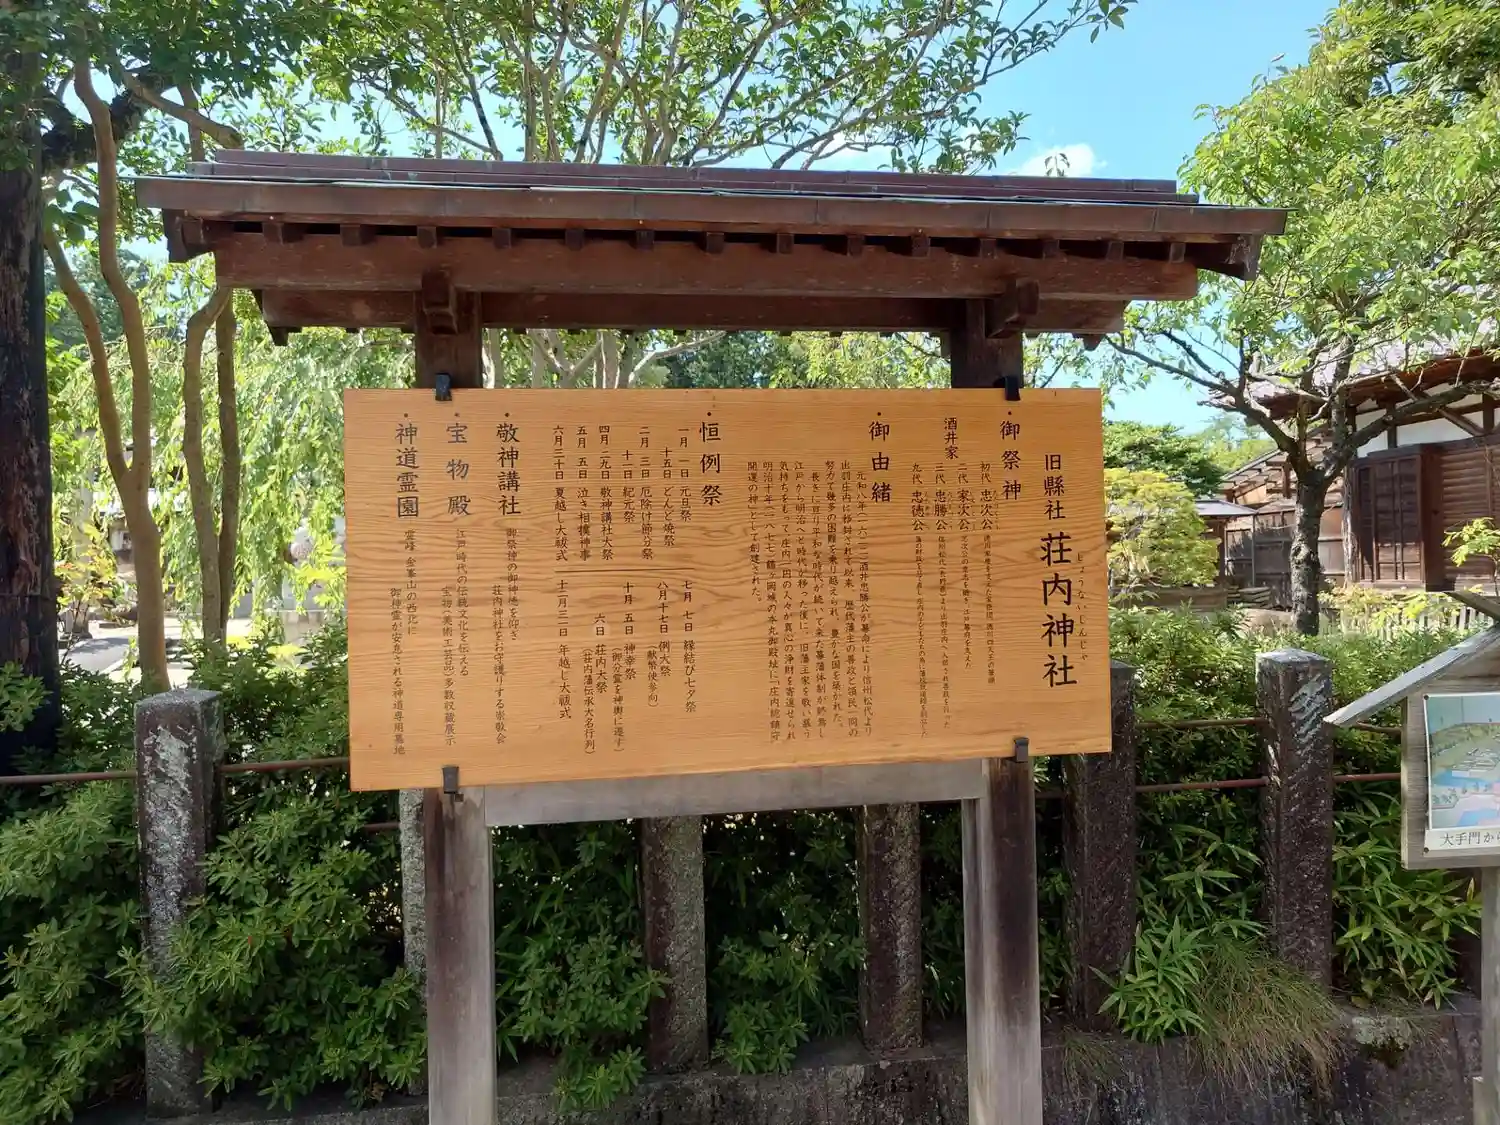 旧縣社 荘内神社
しょうないじんじゃ
・御祭神
酒井家
初代 忠次公
二代 家次公
三代 忠勝公
九代 忠徳公
・御由緒
元和八年(一六二二)酒井忠勝公が幕命により信州松代より
出羽庄内に移封されて以来、歴代藩主の善政と領民一同の
努力で幾多の困難を乗り越えられ、豊かな国を築かれた。
長きに亘り平和な時代が続いて来た幕藩体制が終焉し
江戸から明治へと時代が移った後に、旧藩主家を敬い慕う
気持ちをもって庄内一円の人々が真心の浄財を寄進せられ
明治十年(一八七七)鶴ヶ岡城の本丸御殿址に「庄内総鎮守
開運の神」として創建された。
・恒例祭
一月 一日 元旦祭
十五日 どんど焼祭
二月 三日 厄除け節分祭
十一日 紀元祭
四月 二九日 敬神講社大祭
五月 五日 泣き相撲神事
六月三十日 夏越し大祓式
七月 七日 縁結び七夕祭
八月十七日 例大祭
(献幣使参向)
十月 五日 神幸祭
(御分霊を神輿に遷す)
六日 荘内大祭
(荘内藩伝承大名行列)
十二月三一日 年越し大祓式
・敬神講社
御祭神の御神徳を仰ぎ
荘内神社をお守護りする崇敬会
・宝物殿
江戸時代の伝統文化を伝える
宝物(美術工芸品)多数収蔵展示
・神道霊園
霊峰 金峯山の西北に
御神霊が安息される神道専用墓地
大手門か